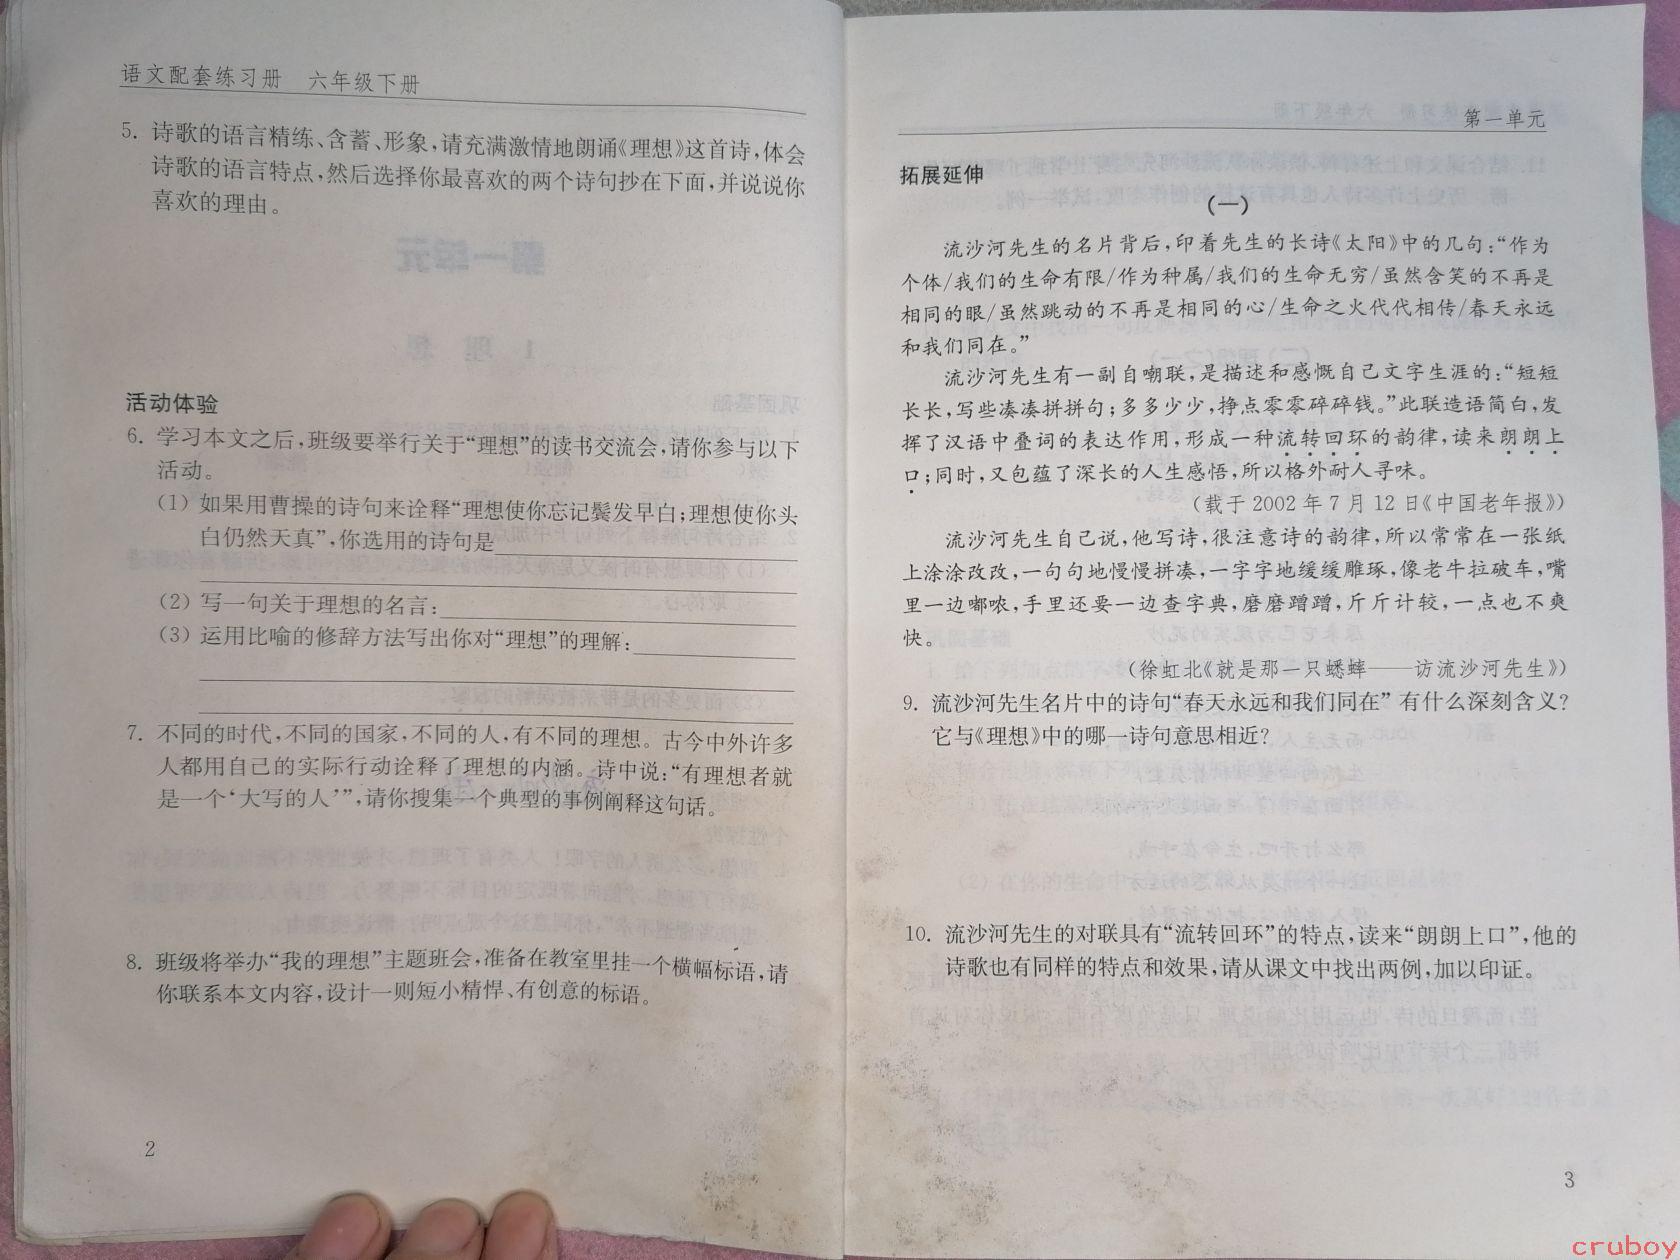 语文配套练习册　六年级下册
5. 诗歌的语言精练、含蓄、形象,请充满激情地朗诵《理想》这首诗,体会
诗歌的语言特点,然后选择你最喜欢的两个诗句抄在下面,并说说你
喜欢的理由。
活动体验
6. 学习本文之后,班级要举行关于“理想”的读书交流会,请你参与以下
活动。
(1) 如果用曹操的诗句来诠释“理想使你忘记鬓发早白;理想使你头
白仍然天真”,你选用的诗句是
(2) 写一句关于理想的名言:
(3) 运用比喻的修辞方法写出你对“理想”的理解:
7. 不同的时代,不同的国家,不同的人,有不同的理想。古今中外许多
人都用自己的实际行动诠释了理想的内涵。诗中说:“有理想者就
是一个‘大写的人’”,请你搜集一个典型的事例阐释这句话。
8. 班级将举办“我的理想”主题班会,准备在教室里挂一个横幅标语,请
你联系本文内容,设计一则短小精悍、有创意的标语。
2
第一单元
拓展延伸
(一)
流沙河先生的名片背后,印着先生的长诗《太阳》中的几句:“作为
个体/我们的生命有限/作为种属/我们的生命无穷/虽然含笑的不再是
相同的眼/虽然跳动的不再是相同的心/生命之火代代相传/春天永远
和我们同在。”
流沙河先生有一副自嘲联,是描述和感慨自己文字生涯的:“短短
长长,写些凑凑拼拼句;多多少少,挣点零零碎碎钱。”此联造语简白,发
挥了汉语中叠词的表达作用,形成一种流转回环的韵律,读来朗朗上
口;同时,又包蕴了深长的人生感悟,所以格外耐人寻味。
(载于 2002 年 7 月 12 日《中国老年报》)
流沙河先生自己说,他写诗,很注意诗的韵律,所以常常在一张纸
上涂涂改改,一句句地慢慢拼凑,一字字地缓缓雕琢,像老牛拉破车,嘴
里一边嘟哝,手里还要一边查字典,磨磨蹭蹭,斤斤计较,一点也不爽
快。
(徐虹北《就是那一只蟋蟀——访流沙河先生》)
9. 流沙河先生名片中的诗句“春天永远和我们同在” 有什么深刻含义?
它与《理想》中的哪一诗句意思相近?
10. 流沙河先生的对联具有“流转回环”的特点,读来“朗朗上口”,他的
诗歌也有同样的特点和效果,请从课文中找出两例,加以印证。
3
cruboy